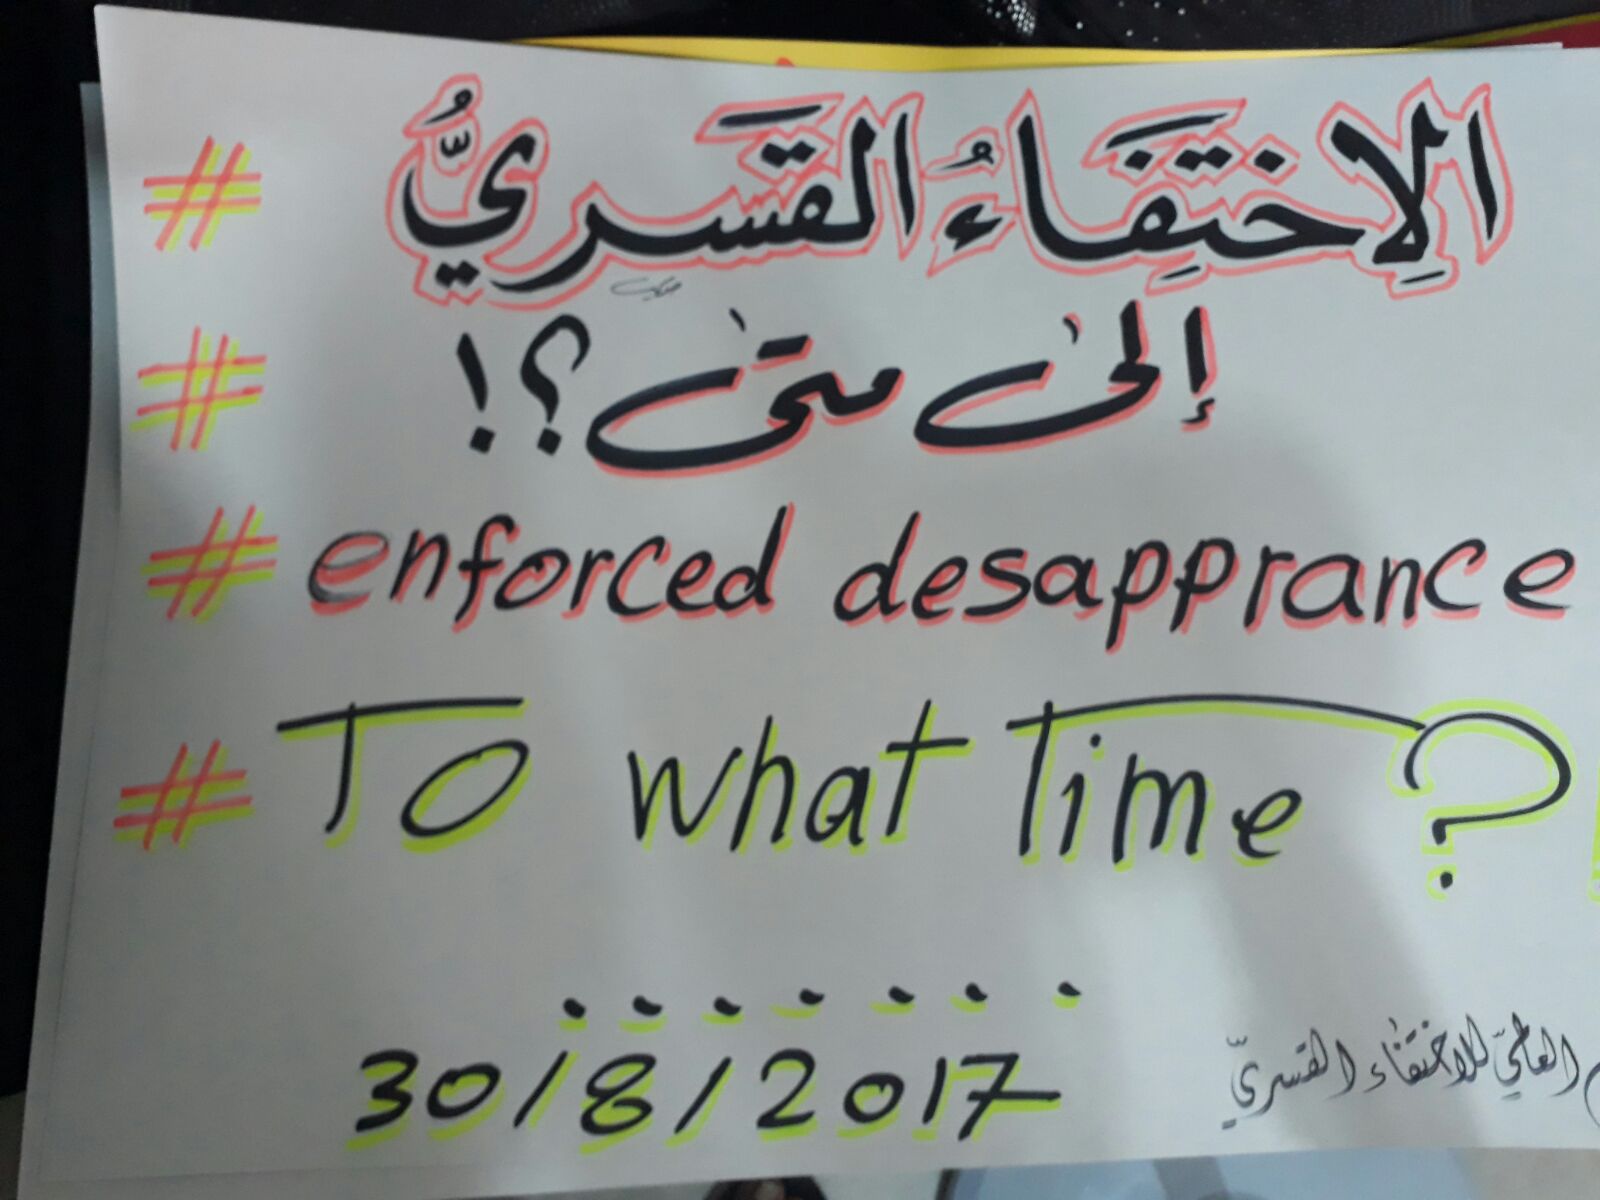 # الِاختِفَاءُ القَسرِيُّ
# إلىٰ متىٰ؟!
# enforced desapprance
# TO what Time ?
.......
30/8/2017
العالميّ للاختفاء القسريّ